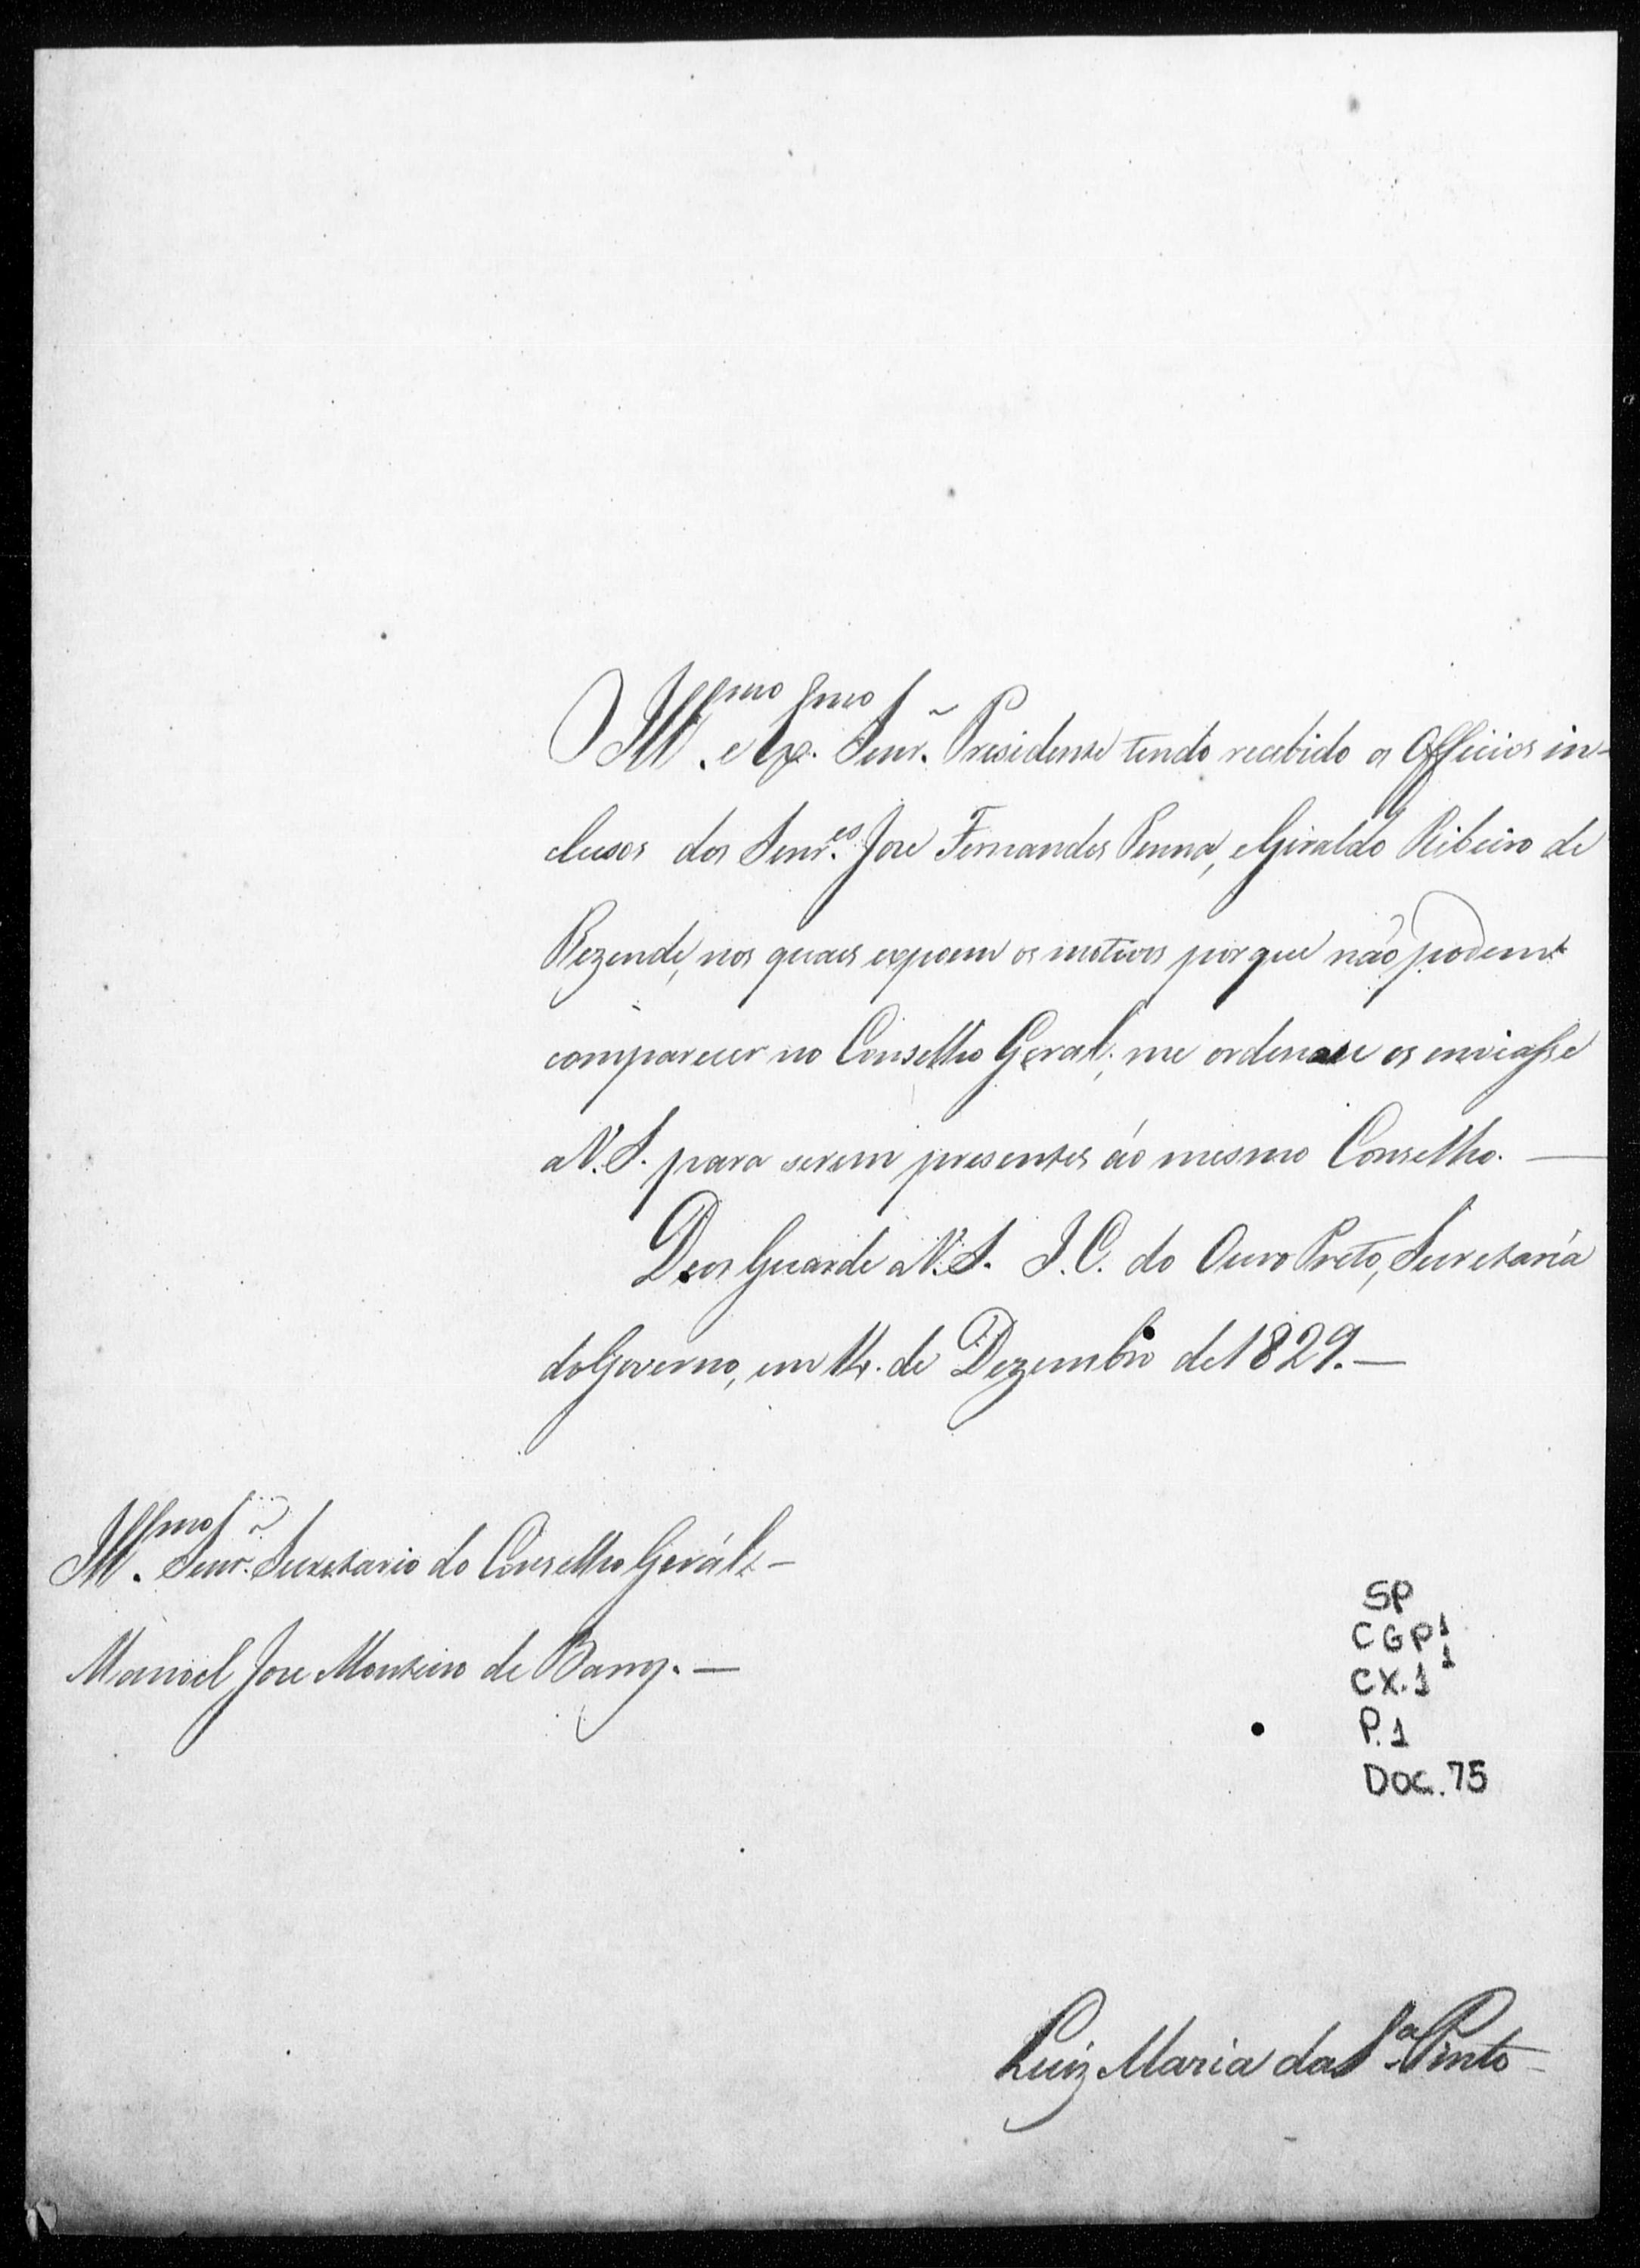 O Ill.mo e Ex.mo Senr. Presidente tendo recebido os Officios in-
clusos dos Senr.es Jose Fernandes Penna, e Giraldo Ribeiro de
Rezende, nos quaes expoem os motivos porque não podem
comparecer no Conselho Geral; me ordenou os enviasse
a V. S. para serem presentes áo mesmo Conselho. —
Deos Guarde a V. S. I. C. do Ouro Preto, Secretaria
do Governo, em de Dezembro de 1829. —
Ill.mo Senr. Secretario do Conselho Gerál -
Manoel Jose Monteiro de Barros. —
SP
CGP1
CX.1
P.1
DOC. 75
Luiz Maria da S.a Pinto